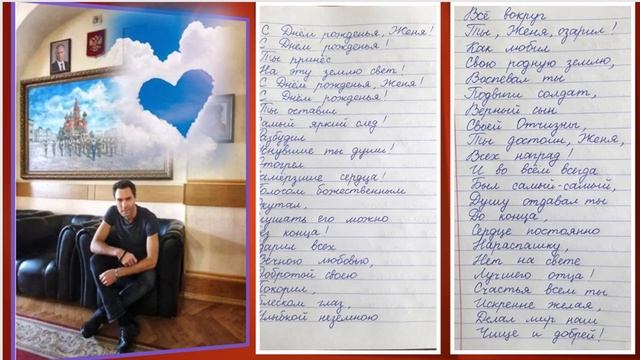 С Днём рожденья, Женя!
С Днём рожденья!
Ты принёс
На эту землю свет!
С Днём рожденья, Женя!
С Днём рожденья!
Ты оставил
Самый яркий след!
Разбудил
Уснувшие ты души!
Отогрел
Замёрзшие сердца!
Голосом божественным
Окутал,
Слушать его можно
Без конца!
Одарил всех
Вечною любовью,
Добротой своею
Покорил,
Блеском глаз,
Улыбкой неземною
Всё вокруг
Ты, Женя, озарил!
Как любил
Свою родную землю,
Воспевал ты
Подвиги солдат,
Верный сын
Своей Отчизны,
Ты достоин, Женя,
Всех наград!
И во всём всегда
Был самый-самый,
Душу отдавал ты
До конца,
Сердце постоянно
Нараспашку,
Нет на свете
Лучшего отца!
Счастья всем ты
Искренне желая,
Делал мир наш
Чище и добрей!